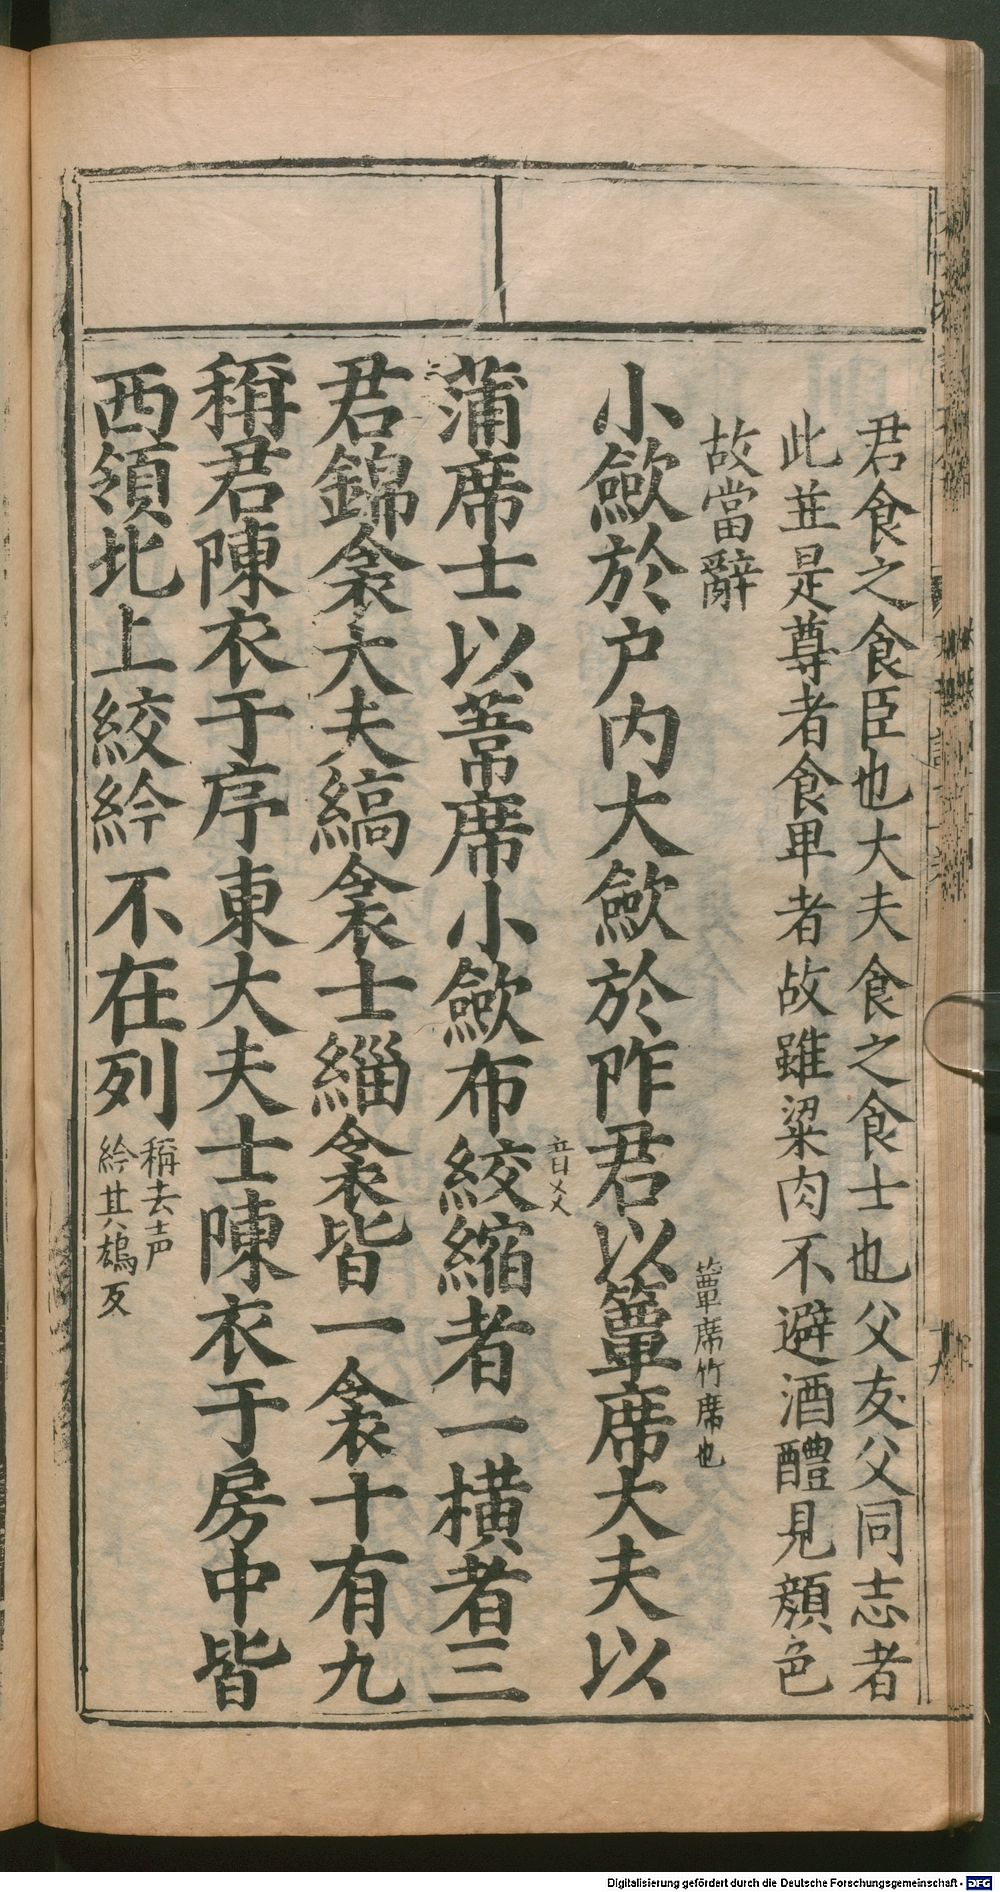 君食之食臣也大夫食之食士也父友父同志者
此並是尊者食卑者故雖粱肉不避酒醴見顔色
故當辭
小歛於户内大歛於阼君以簟席大夫以
簟席竹席也
蒲席士以葦席小歛布絞縮者一橫者三
音爻
君錦衾大夫縞衾士緇衾皆一衾十有九
稱君陳衣于序東大夫士陳衣于房中皆
西領北上絞紟不在列
稱去声
紟其鴆反
Digitalisierung gefördert durch die Deutsche Forschungsgemeinschaft - DFG